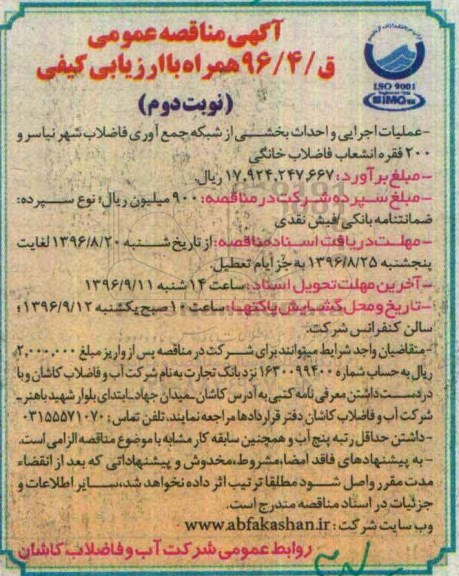 آگهی مناقصه عمومی
ق/۹۶/۴ همراه با ارزیابی کیفی
(نوبت دوم)
ISO 9001
IMQ
-عملیات اجرایی و احداث بخشی از شبکه جمع آوری فاضلاب شهر نیاسر و
۲۰۰ فقره انشعاب فاضلاب خانگی
-مبلغ برآورد: ۱۷,۹۲۴,۲۴۷,۶۶۷ ریال.
-مبلغ سپرده شرکت در مناقصه: ۹۰۰ میلیون ریال؛ نوع سپرده:
ضمانتنامه بانکی/فیش نقدی
-مهلت دریافت اسناد مناقصه: از تاریخ شنبه ۱۳۹۶/۸/۲۰ لغایت
پنجشنبه ۱۳۹۶/۸/۲۵ به جز ایام تعطیل.
-آخرین مهلت تحویل اسناد: ساعت ۱۴ شنبه ۱۳۹۶/۹/۱۱
-تاریخ و محل گشایش پاکتها: ساعت ۱۰ صبح یکشنبه ۱۳۹۶/۹/۱۲؛
سالن کنفرانس شرکت.
-متقاضیان واجد شرایط میتوانند برای شرکت در مناقصه پس از واریز مبلغ ۲,۰۰۰,۰۰۰
ریال به حساب شماره ۱۶۳۰۰۹۹۴۰۰ نزد بانک تجارت به نام شرکت آب و فاضلاب کاشان و با
در دست داشتن معرفی نامه کتبی به آدرس کاشان-میدان جهاد-ابتدای بلوار شهید باهنر-
شرکت آب و فاضلاب کاشان دفتر قراردادها مراجعه نمایند. تلفن تماس: ۰۳۱۵۵۵۷۱۰۷۰
-داشتن حداقل رتبه پنج آب و همچنین سابقه کار مشابه با موضوع مناقصه الزامی است.
-به پیشنهادهای فاقد امضا،مشروط،مخدوش و پیشنهاداتی که بعد از انقضاء
مدت مقرر واصل شود مطلقا ترتیب اثر داده نخواهد شد،سایر اطلاعات و
جزئیات در اسناد مناقصه مندرج است.
وب سایت شرکت: www.abfakashan.ir
روابط عمومی شرکت آب و فاضلاب کاشان